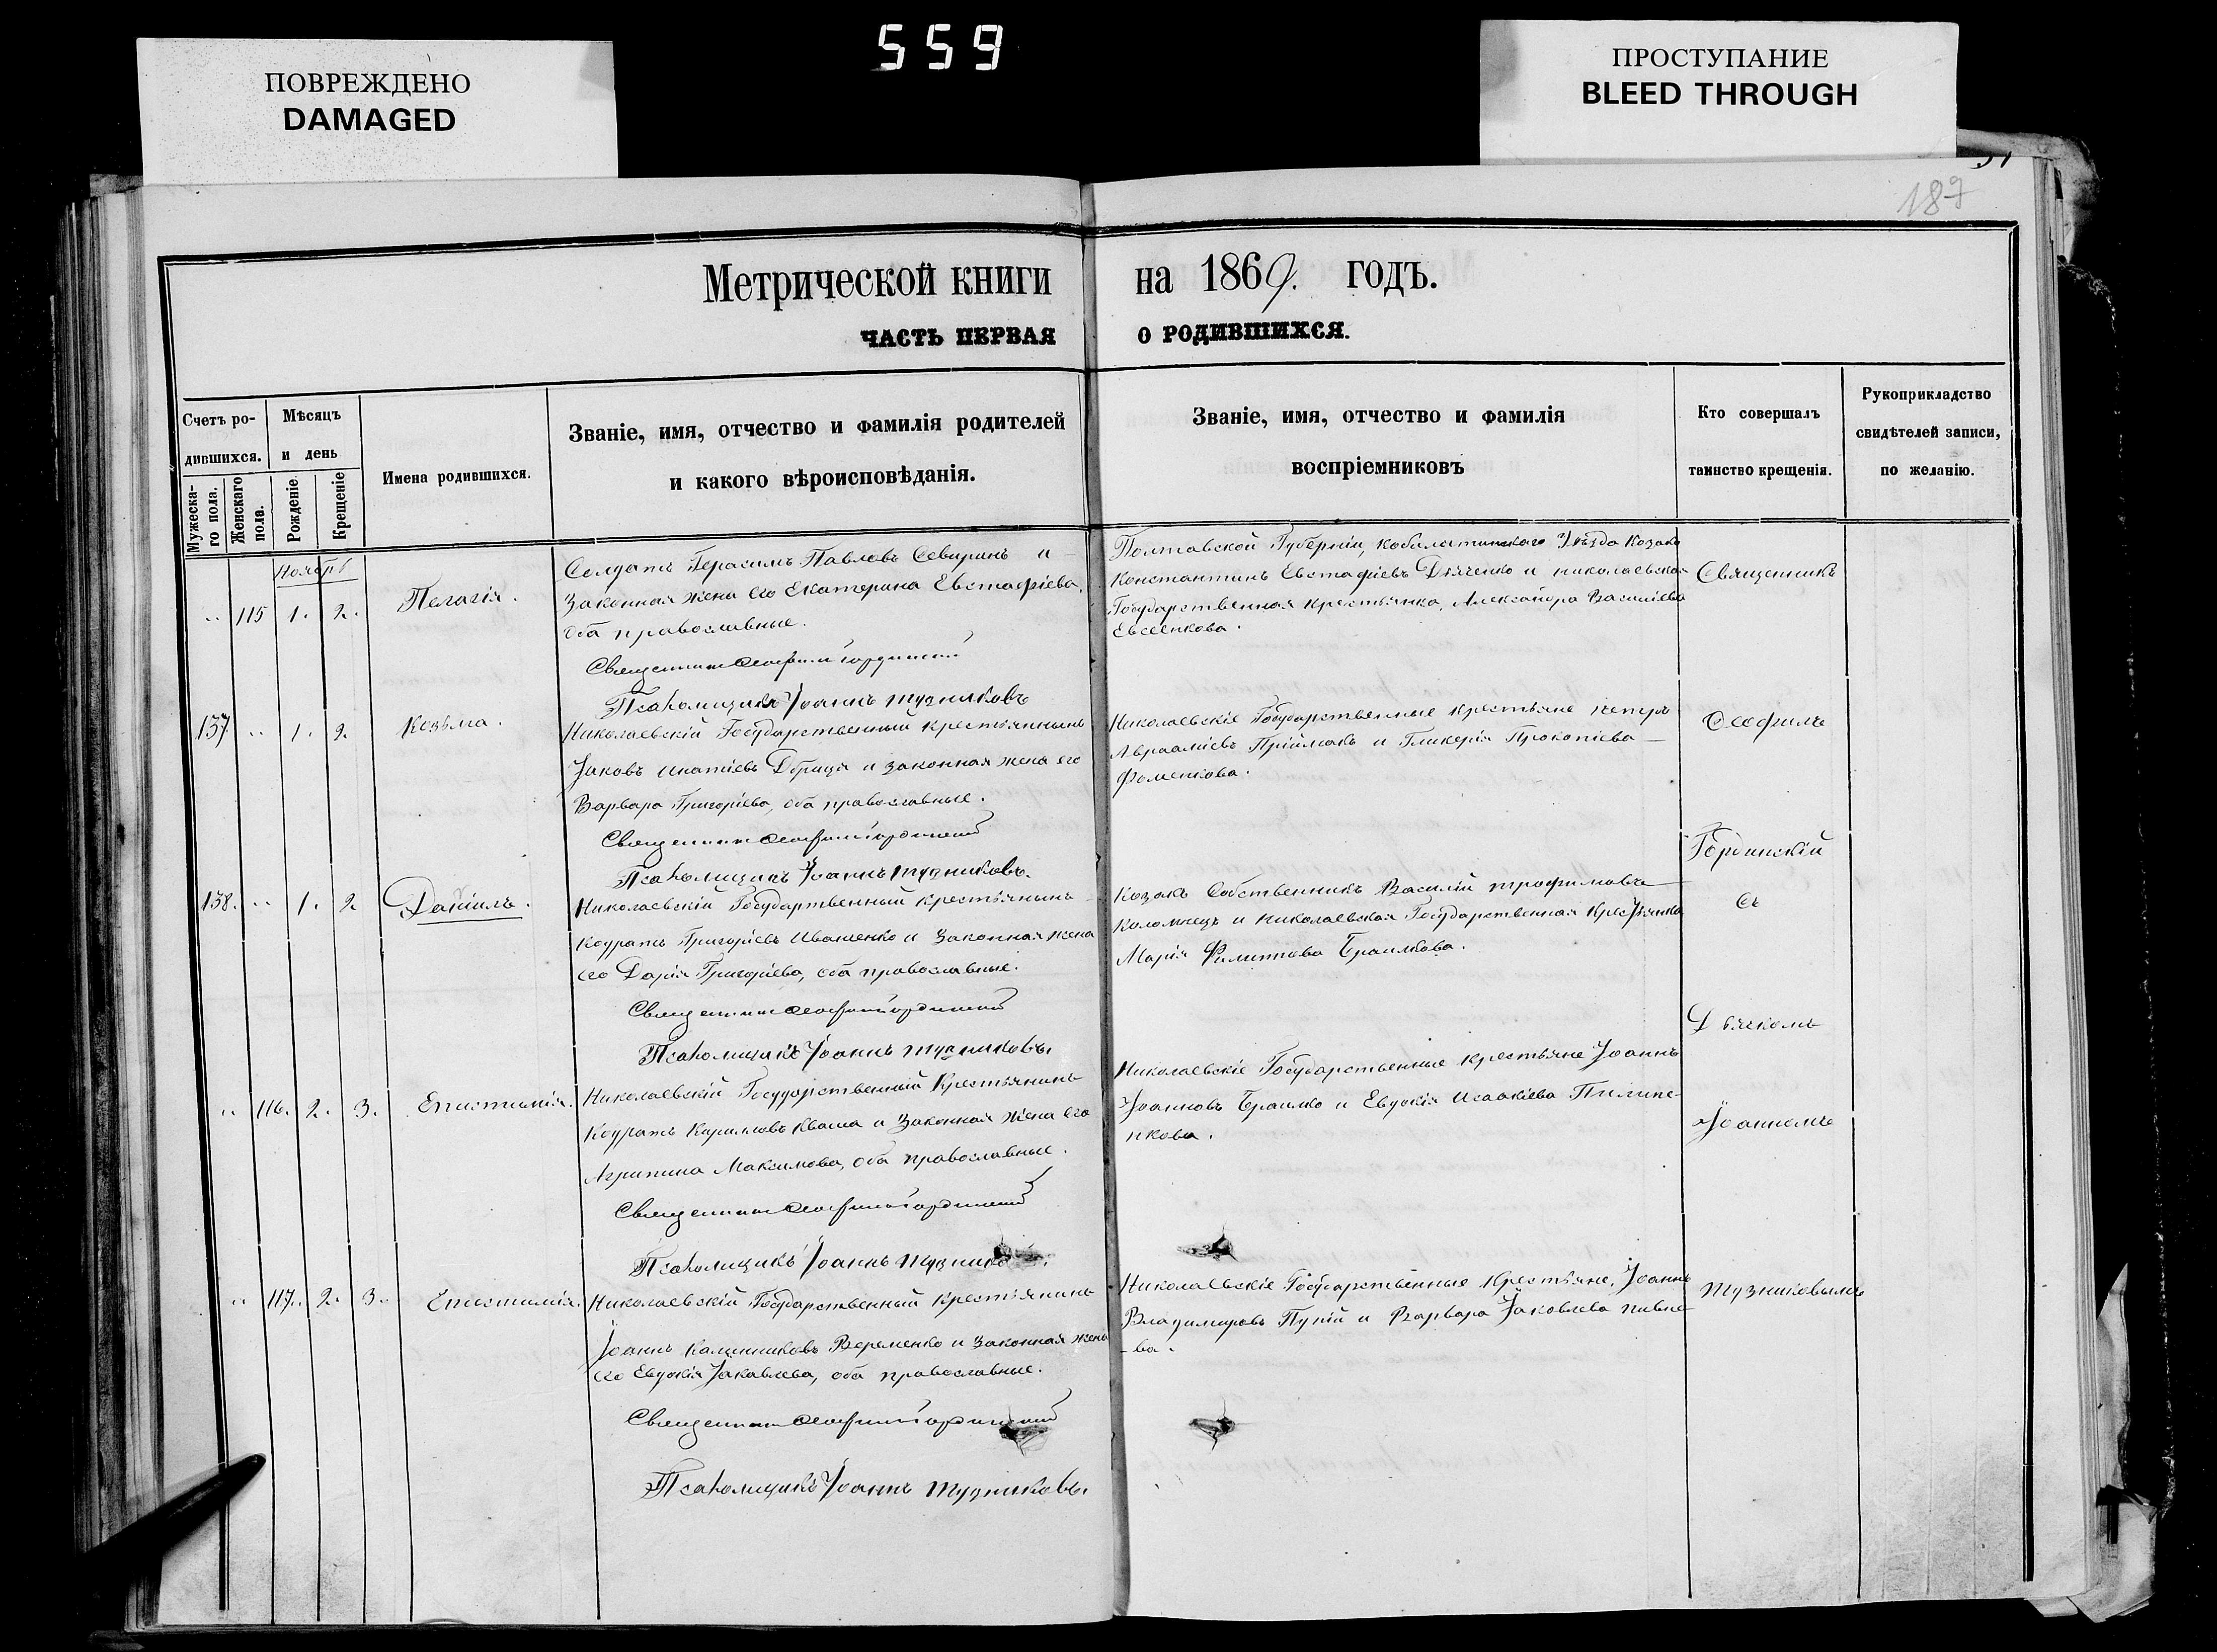 559
ПОВРЕЖДЕНО
DAMAGED
ПРОСТУПАНИЕ
BLEED THROUGH
187
Метрической книги на 1869. годъ.
ЧАСТЬ ПЕРВАЯ О РОДИВШИХСЯ.
Счетъ ро-
дившихся.
Мужеска-
го пола.
Женскаго
пола.
Мѣсяцъ
и день
Рожденіе.
Крещеніе
Имена родившихся.
Званіе, имя, отчество и фамилія родителей
и какого вѣроисповѣданія.
Званіе, имя, отчество и фамилія
воспріемниковъ
Кто совершалъ
таинство крещенія.
Рукоприкладство
свидѣтелей записи,
по желанію.
Ноябрь
" 115 1. 2. Пелагія.
Солдатъ Герасимъ Павловъ Севиринъ и
Законная жена его Екатерина Евстафіева,
оба православные.
Священникъ Ѳеофилъ Гординскій
Псаломщикъ Іоаннъ Тузниковъ
Полтавской Губерніи, Кобелятинскаго Уѣзда Козакъ
Константинъ Евстафіевъ Дяченко и николаевская
Государственная крестьянка, Александра Василіева
Евсеенкова.
137 " 1. 2. Козьма.
Николаевскій Государственный крестьянинъ
Іаковъ Игнатіевъ Дбрица и законная жена его
Варвара Григоріева, оба православные.
Священникъ Ѳеофилъ Гординскій
Псаломщикъ Іоаннъ Тузниковъ.
Николаевскіе Государственные крестьяне Петръ
Авраамієвъ Пріймакъ и Гликерія Прокопіева
Фоменкова.
138. " 1. 2. Даніилъ.
Николаевскій Государтвенный крестьянинъ
Кодратъ Григоріевъ Иващенко и Законная жена
его Дарія Григоріева, оба православные.
Священникъ Ѳеофилъ Гординскій
Псаломщикъ Іоаннъ Тузниковъ
Козакъ Собственникъ Василій Трофимовъ
Коломіецъ и николаевская Государственная Крестьянка
Марія Филиппова Браилкова.
" 116. 2. 3. Епистимія.
Николаевскій Государственный Крестьянинъ
Кодратъ Кириловъ Кваша и Законная жена его
Агрипина Максимова, оба православные.
Священникъ Ѳеофилъ Гординскій
Псаломщикъ Іоаннъ Тузнико
Николаевскіе Государственные крестьяне Іоаннъ
Іоанновъ Браилко и Евдокія Исаакіева Пилипе-
нкова.
" 117. 2. 3. Епистимія.
Николаевскій Государственный крестьянинъ
Іоаннъ Калинниковъ Веременко и Законная жена
его Евдокія Іаковлева, оба православные.
Священникъ Ѳеофилъ Гординскій
Псаломщикъ Іоаннъ Тузниковъ.
Николаевскіе Государственные Крестьяне, Іоаннъ
Владимировъ Пугій и Варвара Іаковлева Пивне-
-ва.
Священникъ
Ѳеофилъ
Гординскій
Съ
Дьячкомъ
Іоанномъ
Тузниковымъ